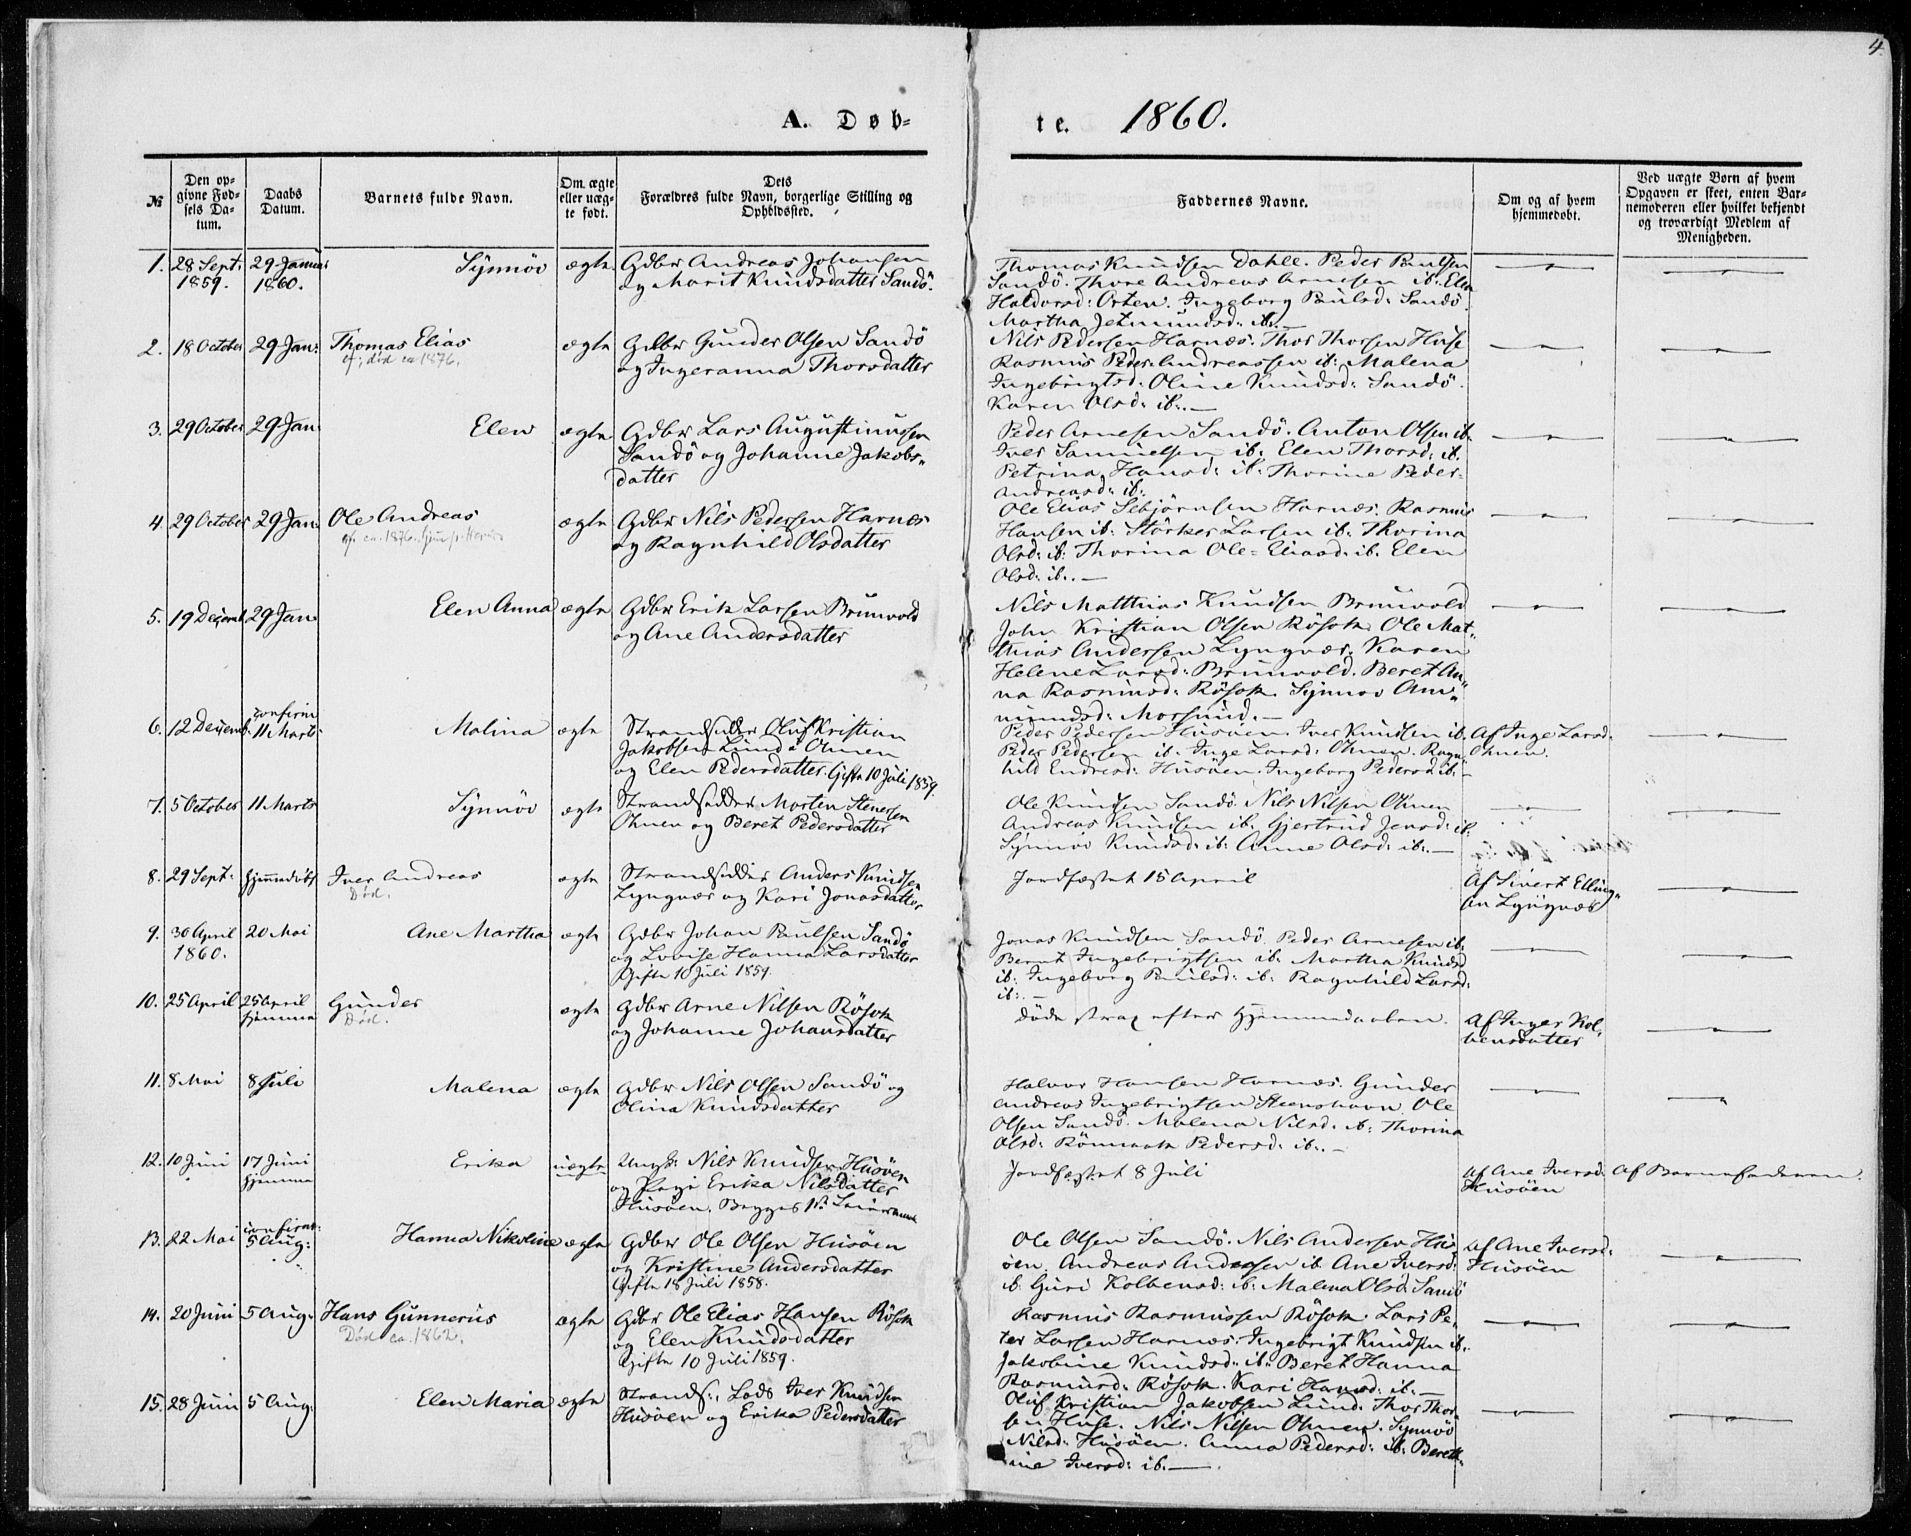 4.
A. Døb-
te. 1860.
№
Den op-
givne Fød-
sels Da-
tum.
Daabs
Datum.
Barnets fulde Navn.
Om ægte
eller uæg-
te født.
Dets
Forældres fulde Navn, borgerlige Stilling og
Opholdssted.
Faddernes Navne.
Om og af hvem
hjemmedøbt.
Ved uægte Børn af hvem
Opgaven er skeet, enten Bar-
nemoderen eller hvilket bekjendt
og troværdigt Medlem af
Menigheden.
1. 28 Sept: 29 Januar Synnöv ægte Gdbr Andreas Johansen
1859. 1860. og Marit Knudsdatter Sandö.
Thomas Knudsen Dahle. Peder Paulsen
Sandö. Thore Andreas Arnesen ib. Elen
Haldorsd: Orten. Ingeborg Paulsd: Sandö
Martha Jetmundsd: ib.
2. 18 October 29 Jan: Thomas Elias ægte Gdbr Gunder Olsen Sandö
død ca 1876. og Ingeranna Thorsdatter
Nils Pedersen Harnæs. Thor Thorsen Huse
Rasmus Peder Andreassen ib: Malena
Ingebrigtsd: Oline Knudsd: Sandö.
Karen Olsd: ib.
3. 29 October 29 Jan: Elen ægte Gdbr Lars Augustinussen
Sandö og Johanne Jakobs-
datter
Peder Arnesen Sandö. Anton Olsen ib.
Iver Samuelsen ib: Elen Thorsd: ib.
Petrina Hansd: ib: Thorine Peder-
andreasd: ib:
4. 29 October 29 Jan: Ole Andreas ægte Gdbr Nils Pedersen Harnæs
ca. 1876. og Ragnhild Olsdatter
Ole Elias Sebjörnsen Harnæs. Rasmus
Hansen ib: Störker Larsen ib: Thorina
Olsd: ib: Thorina Ole-Eliasd: ib. Elen
Olsd: ib.
5. 19 Decemb. 29 Jan: Elen Anna ægte Gdbr Erik Larsen Brunvold
og Ane Andersdatter
Nils Matthias Knudsen Brunvold
John Kristian Olsen Rösok. Ole Mat-
thias Andersen Lyngnæs. Karen
Helene Larsd: Brunvold. Beret An-
na Rasmusd: Rösok. Synnöv Am-
mundsd: Morsund.
6. 12 Decemb. confirm. Malina ægte Strandsidder Oluf Kristian
11 Marts Jakobsen Lund Ohnen
og Elen Pedersdatter. Gifte 10 Juli 1859.
Peder Pedersen Husöen. Iver Knudsen ib. Af Inge Larsd:
Peder Pedersen ib. Inge Larsd: Ohnen. Ragn- Ohnen.
hild Endresd: Husöen. Ingeborg Pedersd: ib.
7. 5 October 11 Marts Synnöv ægte Strandsidder Morten Stenersen
Ohnen og Beret Pedersdatter
Ole Knudsen Sandö. Nils Nilsen Ohnen
Andreas Knudsen ib. Gjertrud Jensd: ib.
Synnöv Knudsd: ib: Anne Olsd: ib:
8. 29 Sept: hjemmedöbt Iver Andreas ægte Strandsidder Anders Knudsen
Død. Lyngnæs og Kari Jonasdatter
Jordfæstet 15 April Af Sivert Elling-
en Lyngnæs
9. 30 April 20 Mai Ane Martha ægte Gdbr Johan Paulsen Sandö
1860. og Lovise Hanna Larsdatter
Gifte 10 Juli 1859.
Jonas Knudsen Sandö. Peder Arnesen ib.
Bernt Ingebrigtsen ib. Martha Knudsd:
ib: Ingeborg Paulsd: ib: Ragnhild Larsd:
ib:
10. 25 April 25 April Gunder ægte Gdbr Arne Nilsen Rösok
hjemme Død. og Johanne Johansdatter
döde strax efter Hjemmedaaben. Af Inger Kol-
bensdatter
11. 8 Mai 8 Juli Malena ægte Gdbr Nils Olsen Sandö og
Olina Knudsdatter
Halvor Hansen Harnæs. Gunder
Andreas Ingebrigtsen Steenshavn. Ole
Olsen Sandö. Malena Nilsd: ib: Thorina
Olsd: Rönnaak Pedersd: ib:
12. 10 Juni 17 Juni Erika uægte Ungk: Nils Knudsen Husöen
hjemme og Pige Erika Nilsdatter
Husöen. Begges 1ste Leiermaal
Jordfæstet 8 Juli Af Ane Iversd: Af Barnefaderen.
Husöen
13. 22 Mai confirm: Hanna Nikoline ægte Gdbr Ole Olsen Husöen
5 Aug: og Kristine Andersdatter
Gifte 18 Juli 1858.
Ole Olsen Sandö. Nils Andersen Hus- Af Ane Iversd:
öen. Andreas Andersen ib. Ane Iversd: Husöen
ib. Guri Kolbensd: ib: Malena Olsd: Sandö
14. 20 Juni 5 Aug: Hans Gunnerius ægte Gdbr Ole Elias Hansen Rösok
Død ca. 1862. og Elen Knudsdatter
Gifte 10 Juli 1859.
Rasmus Rasmussen Rösok. Lars Pe-
ter Larsen Harnæs. Ingebrigt Knudsen ib.
Jakobine Knudsd: ib: Beret Hanna
Rasmusd: Rösok. Kari Hansd: ib.
15. 28 Juni 5 Aug: Elen Maria ægte Strands:, Lods Iver Knudsen
Husöen og Erika Pedersdatter
Oluf Kristian Jakobsen Lund. Thor Thor-
sen Huse. Nils Nilsen Ohnen. Synnöv
Nilsd: Husöen. Anna Pedersd: ib: Bereth-
ine Iversd: ib.